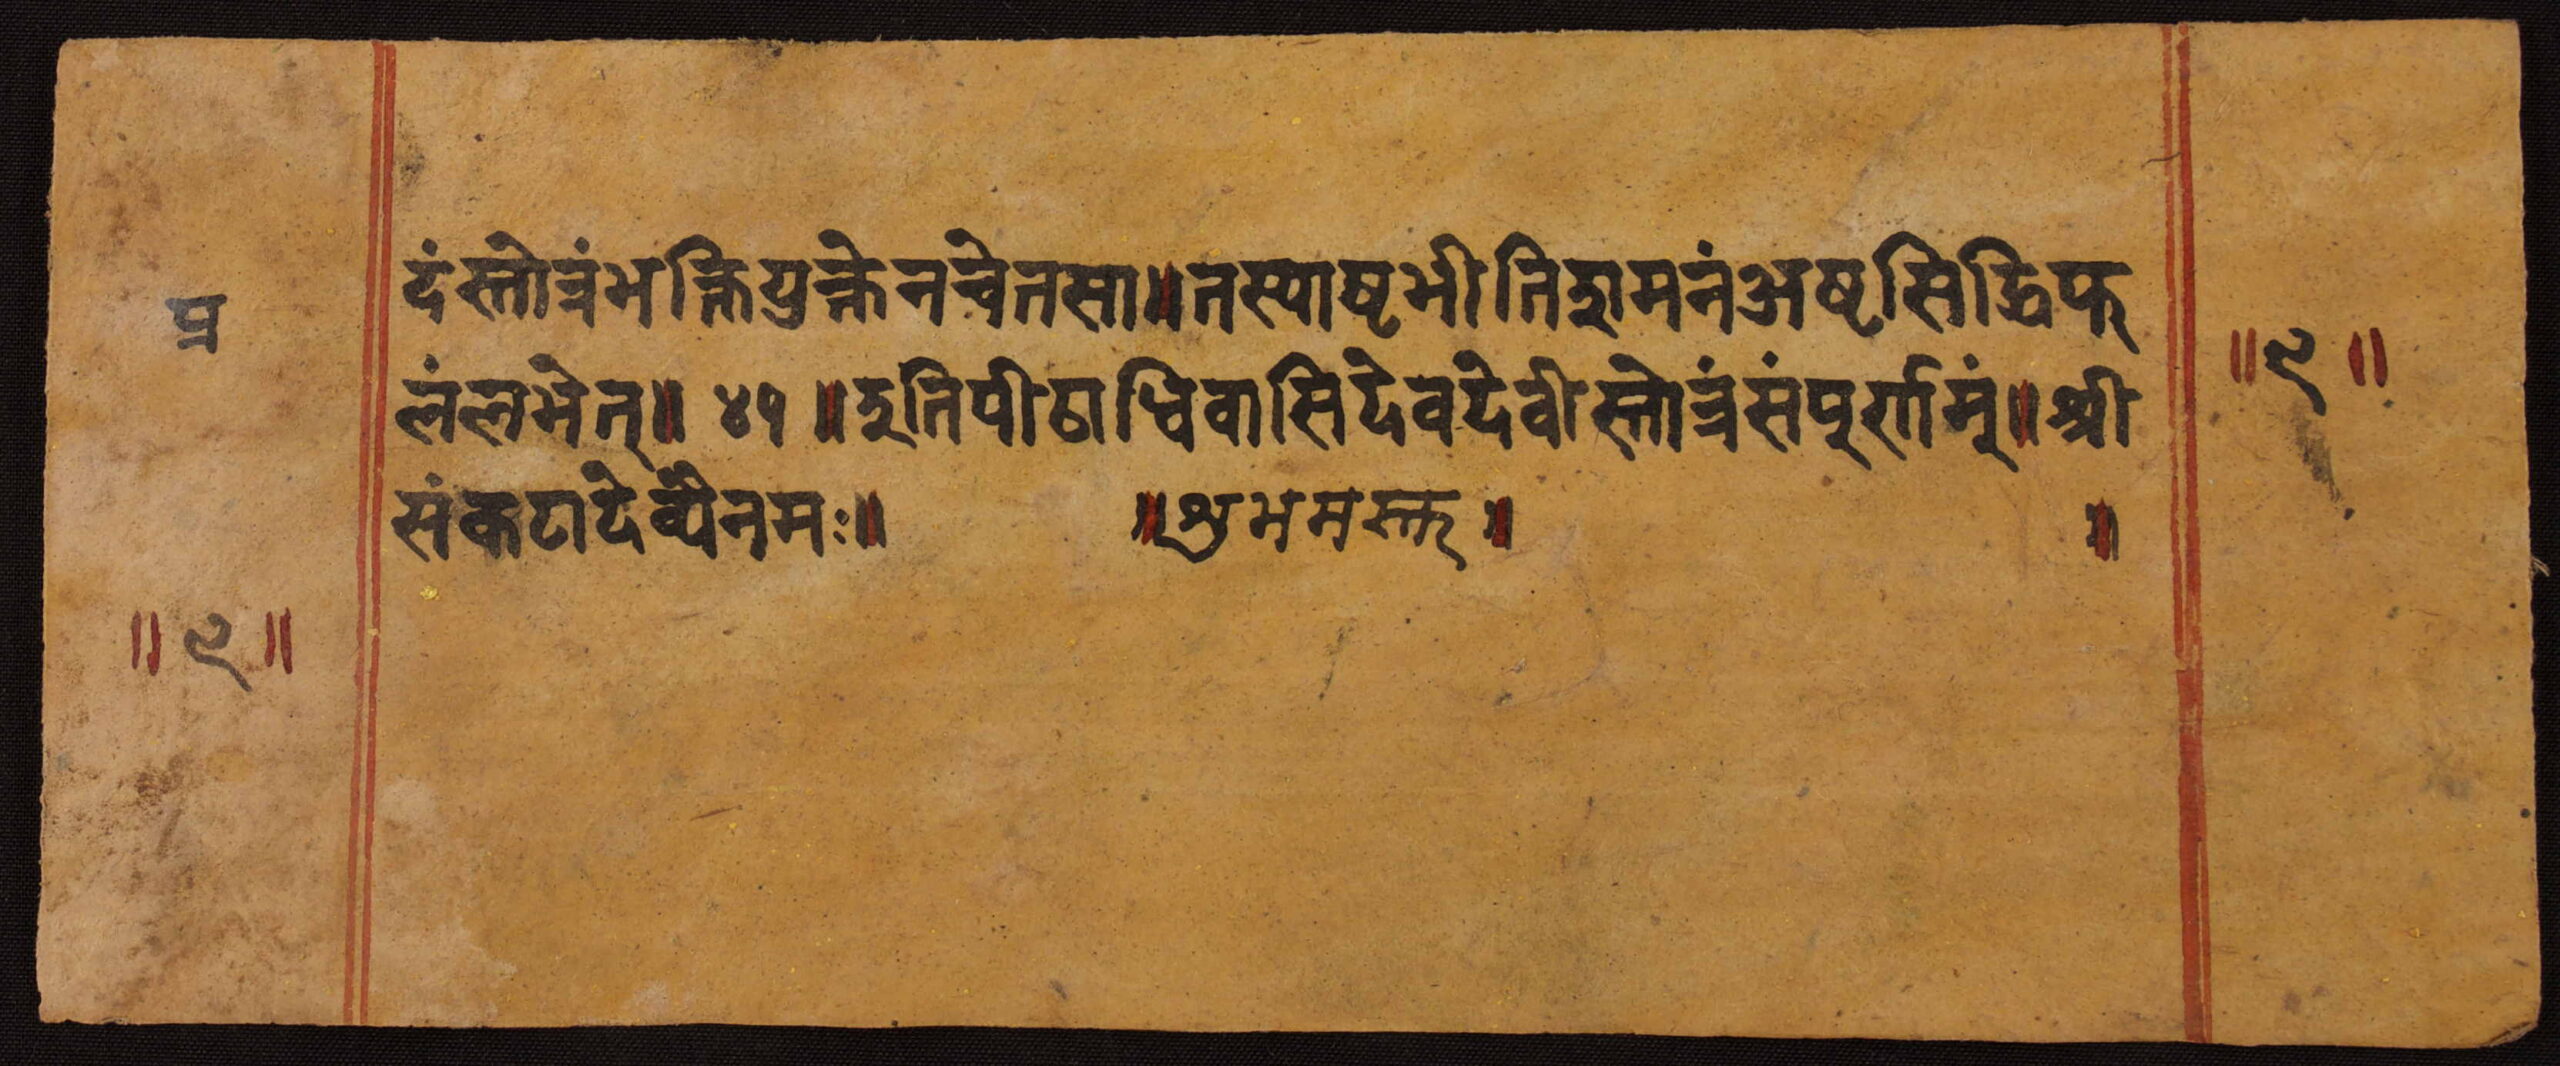 दंस्तोत्रंभक्तियुक्तेनचेतसा॥तस्याष्टभीतिशमनंअष्टसिद्धिफ
लंलभेत्॥ ४१ ॥इतिपीठाधिवासिदेवदेवीस्तोत्रंसंपूर्णम्॥श्री
संकटादेव्यैनमः॥ ॥शुभमस्तु॥ ॥
प्र
॥९॥
॥९॥